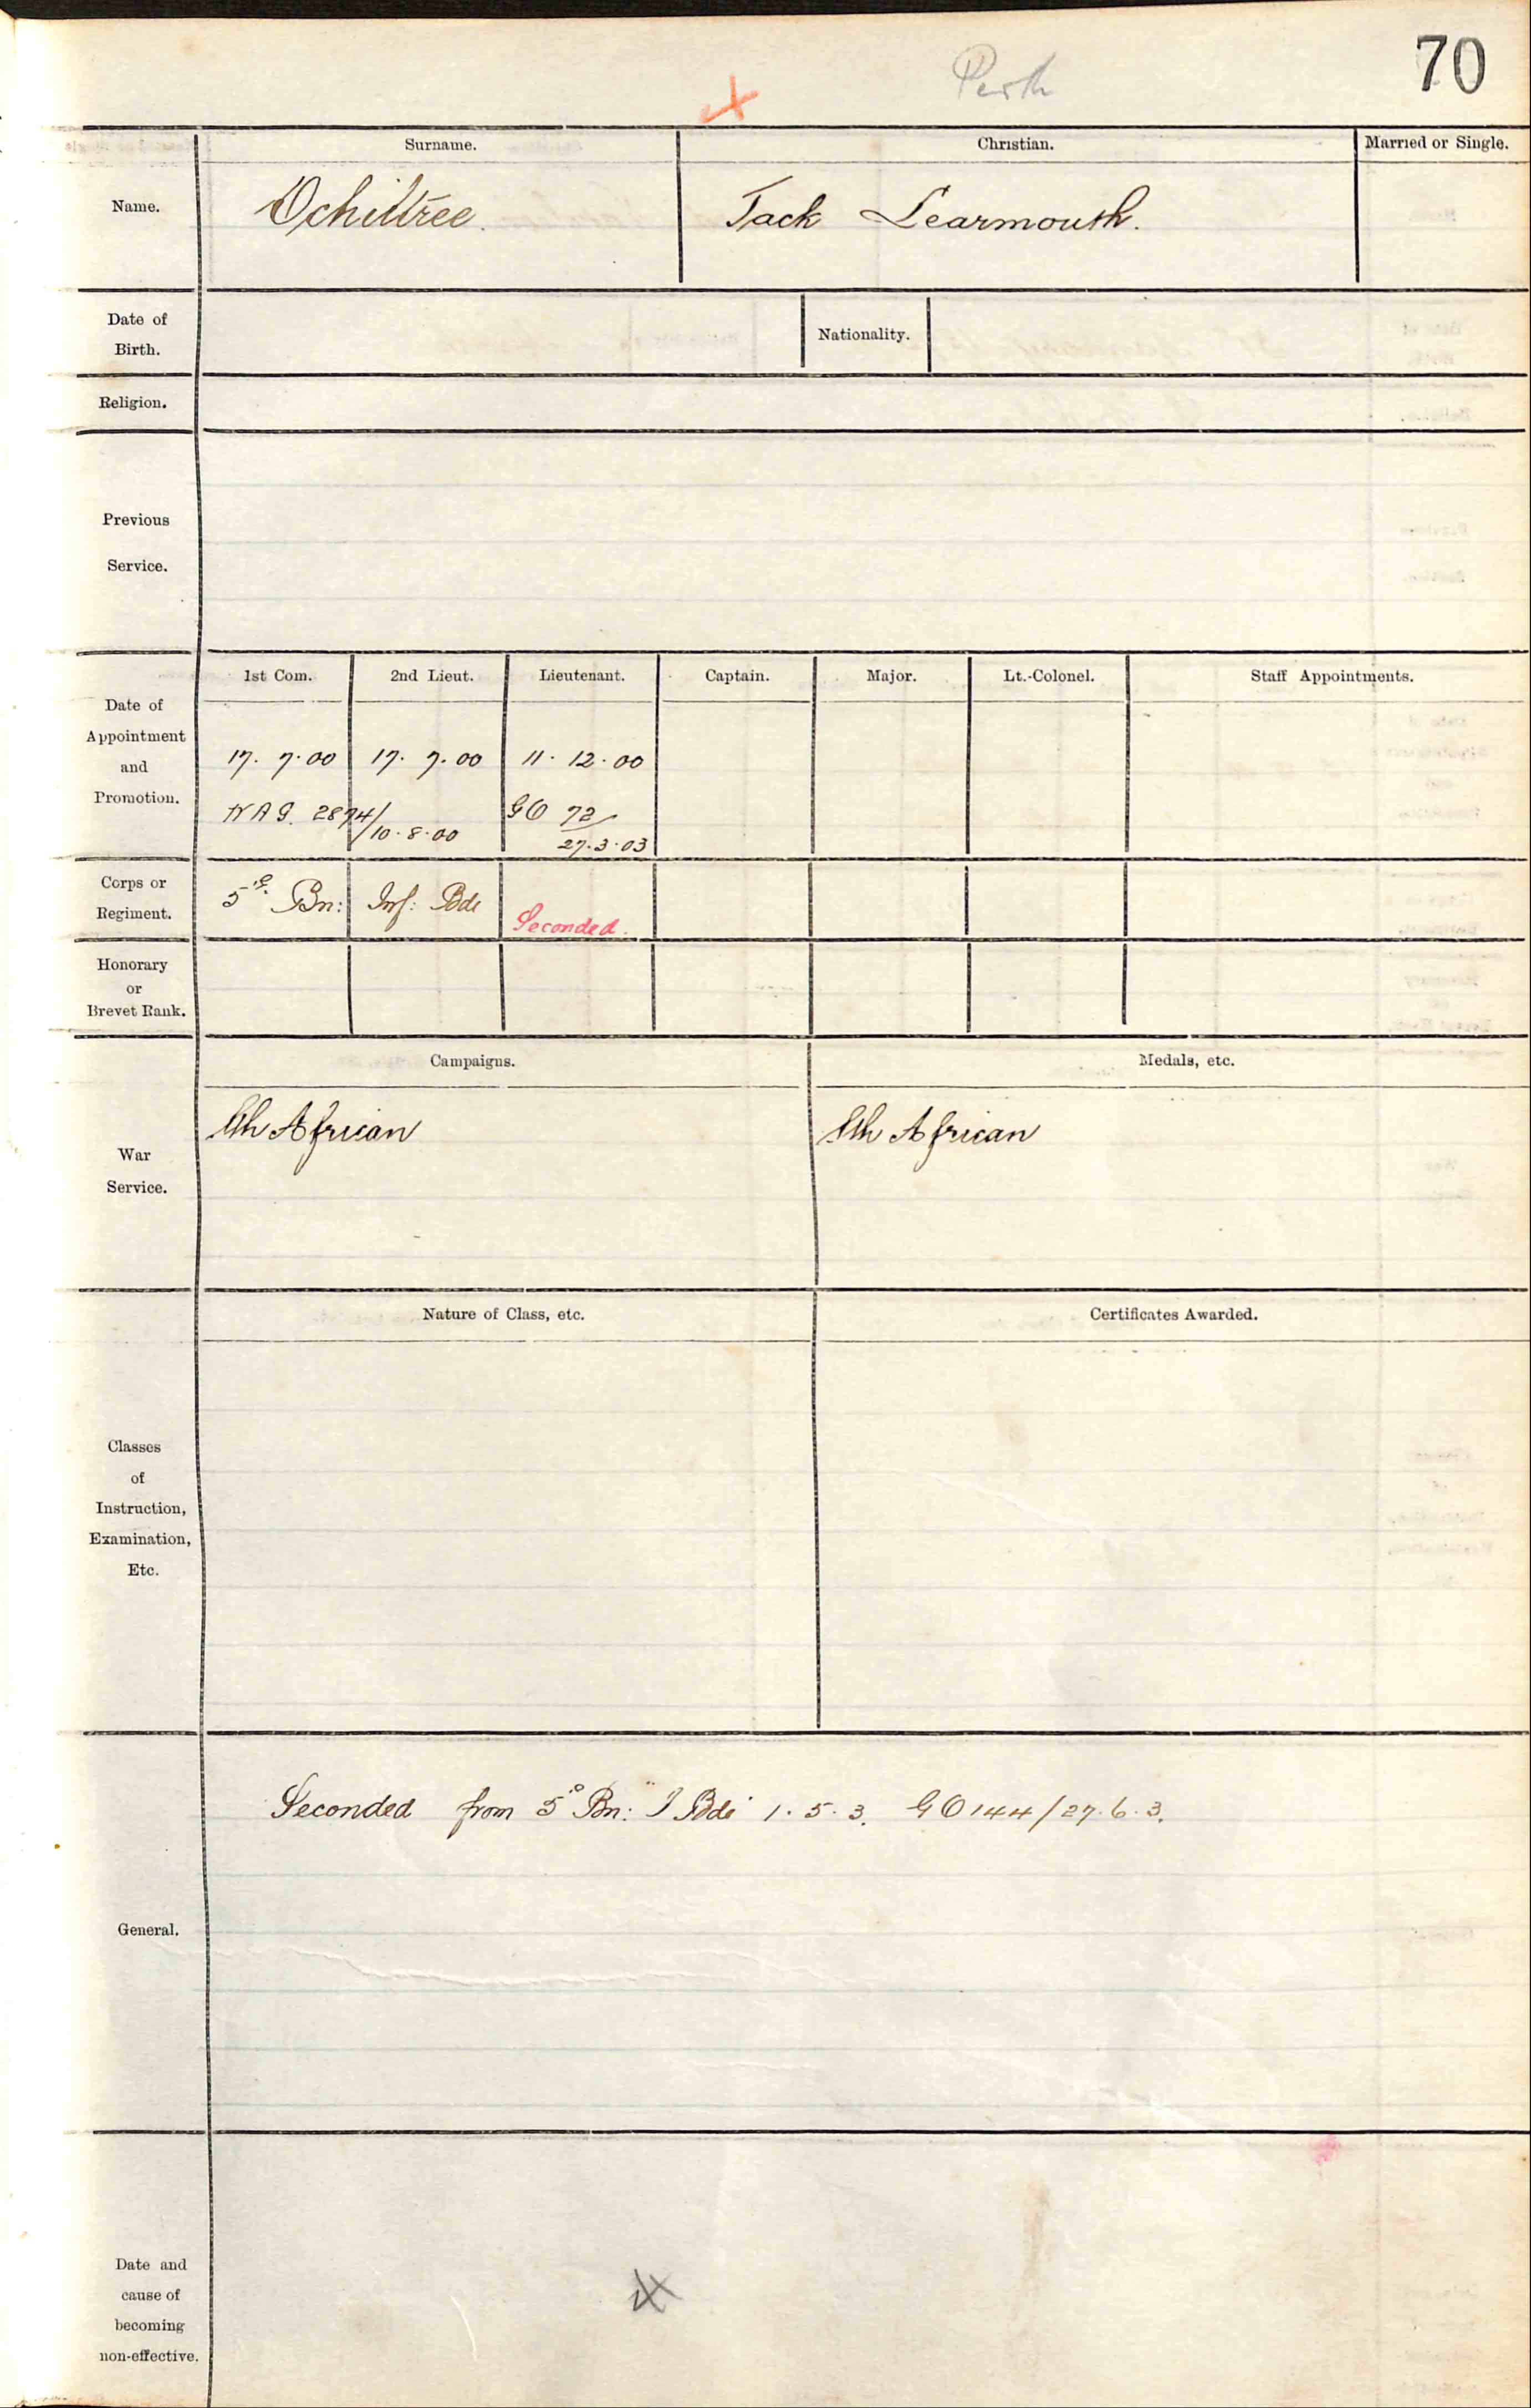 70
Perth
Surname. Christian. Married or Single.
Name. Ochiltree. Jack Learmouth.
Date of Birth. Nationality.
Religion.
Previous
Service.
1st Com. 2nd Lieut. Lieutenant. Captain. Major. Lt.-Colonel. Staff Appointments.
Date of
Appointment
and
Promotion.
17. 7. 00 17. 7. 00 11. 12. 00
WAG. 2874/10.8.00 GO 72/27.3.03
Corps or
Regiment.
5th Bn: Inf: Bde Seconded.
Honorary
or
Brevet Rank.
Campaigns. Medals, etc.
African African
War
Service.
Nature of Class, etc. Certificates Awarded.
Classes
of
Instruction,
Examination,
Etc.
Seconded from 5th Bn: I Bde 1.5.3. GO 144/27.6.3.
General.
Date and
cause of
becoming
non-effective.